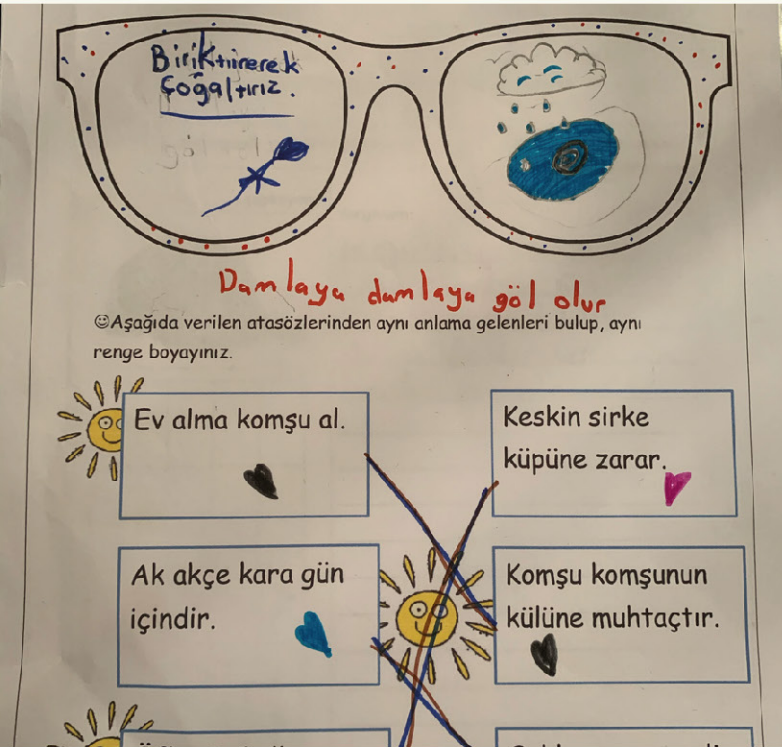 Biriktirerek
Çoğaltırız.
Damlaya damlaya göl olur
Aşağıda verilen atasözlerinden aynı anlama gelenleri bulup, aynı
renge boyayınız.
Ev alma komşu al.
Keskin sirke
küpüne zarar.
Ak akçe kara gün
içindir.
Komşu komşunun
külüne muhtaçtır.